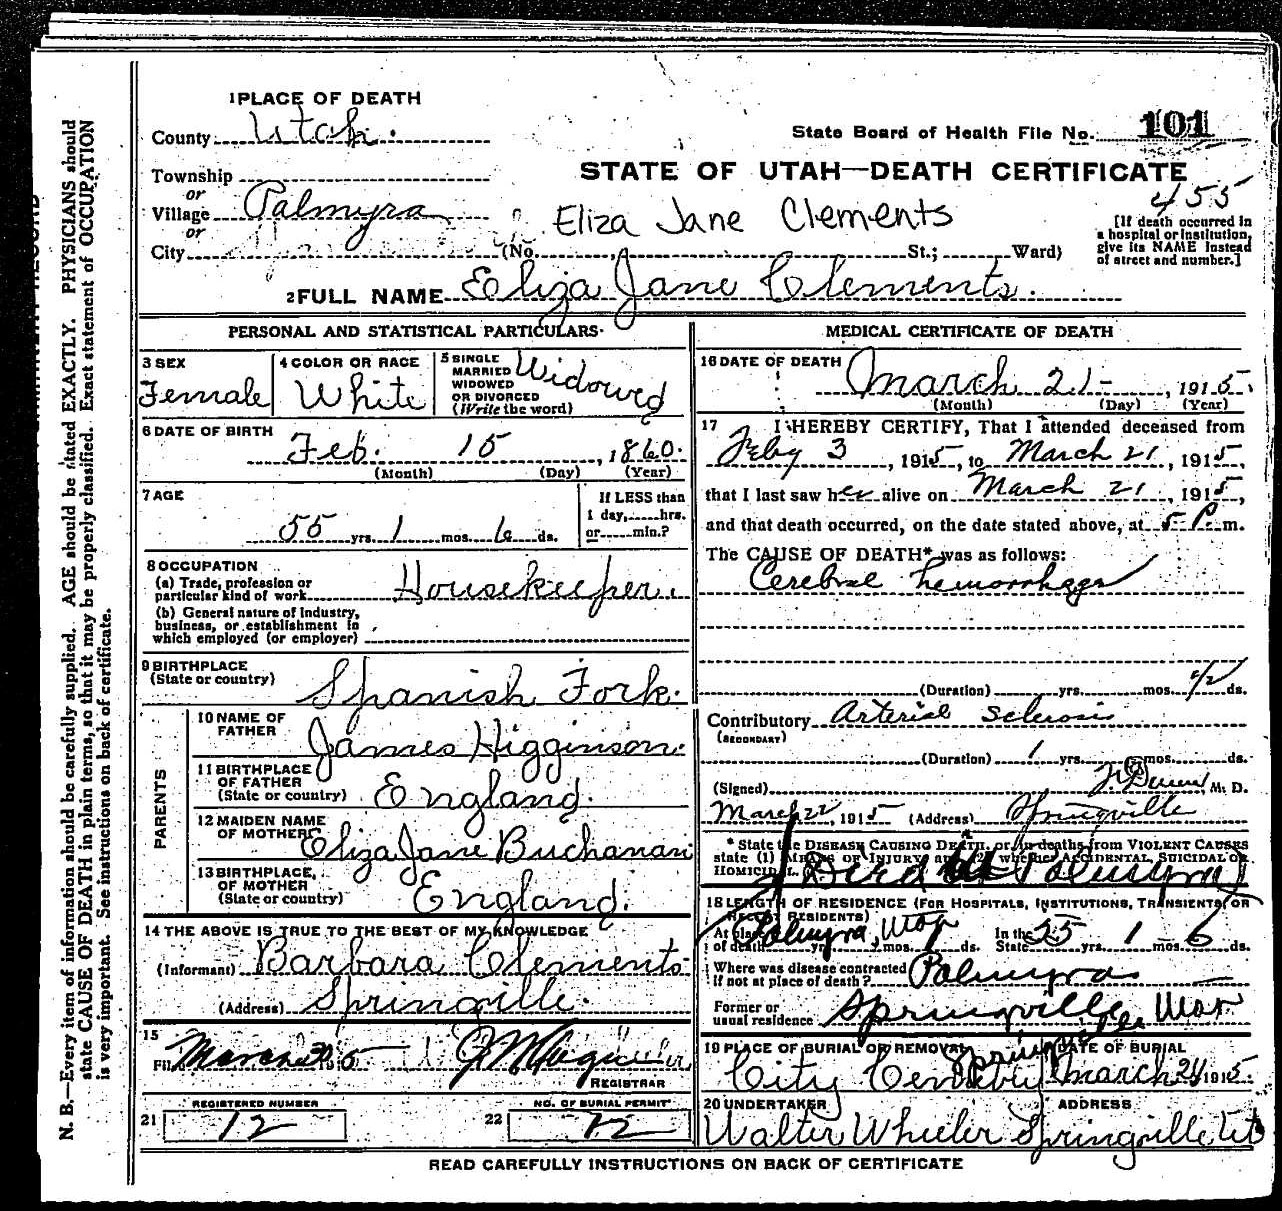 1 PLACE OF DEATH
County Utah.
State Board of Health File No. 101
Township
or
Village Palmyra
or
City
STATE OF UTAH—DEATH CERTIFICATE
455
Eliza Jane Clements
(No. St.; Ward)
[If death occurred in
a hospital or institution,
give its NAME instead
of street and number.]
2 FULL NAME Eliza Jane Clements.
PERSONAL AND STATISTICAL PARTICULARS
3 SEX
Female
4 COLOR OR RACE
White
5 SINGLE
MARRIED
WIDOWED
OR DIVORCED
(Write the word)
Widowed
6 DATE OF BIRTH
Feb. 15, 1860.
(Month) (Day) (Year)
7 AGE
55 yrs. 1 mos. 6 ds.
If LESS than
1 day, hrs.
or min.?
8 OCCUPATION
(a) Trade, profession or
particular kind of work Housekeeper.
(b) General nature of industry,
business, or establishment in
which employed (or employer)
9 BIRTHPLACE
(State or country)
Spanish Fork.
PARENTS
10 NAME OF
FATHER
James Higginson.
11 BIRTHPLACE
OF FATHER
(State or country) England.
12 MAIDEN NAME
OF MOTHER
Eliza Jane Buchanan
13 BIRTHPLACE,
OF MOTHER
(State or country) England.
14 THE ABOVE IS TRUE TO THE BEST OF MY KNOWLEDGE
(Informant) Barbara Clements
(Address) Springville.
15
REGISTRAR
REGISTERED NUMBER
21 12
NO. OF BURIAL PERMIT
22 12
MEDICAL CERTIFICATE OF DEATH
16 DATE OF DEATH
March 21, 1915.
(Month) (Day) (Year)
17 I HEREBY CERTIFY, That I attended deceased from
Feby 3, 1915, to March 21, 1915,
that I last saw her alive on March 21, 1915,
and that death occurred, on the date stated above, at 5 P. m.
The CAUSE OF DEATH* was as follows:
Cerebral hemorrhage
(Duration) yrs. mos. 1/2 ds.
Contributory Arterial Sclerosis
(SECONDARY)
(Duration) 1 yrs. mos. ds.
(Signed) M. D.
March 22, 1915 (Address) Springville
* State the DISEASE CAUSING DEATH, or, in deaths from VIOLENT CAUSES
state (1) MEANS OF INJURY and (2) whether ACCIDENTAL, SUICIDAL OR
HOMICIDAL.
Died at Palmyra
18 LENGTH OF RESIDENCE (FOR HOSPITALS, INSTITUTIONS, TRANSIENTS OR
RECENT RESIDENTS)
At place
of death Palmyra, yrs. mos. ds. In the State 55 yrs. 1 mos. 6 ds.
Where was disease contracted
If not at place of death? Palmyra
Former or
usual residence Springville
19 PLACE OF BURIAL OR REMOVAL
Springville
City Cemetery
DATE OF BURIAL
March 24, 1915.
20 UNDERTAKER
Walter Wheeler
ADDRESS
Springville Ut
READ CAREFULLY INSTRUCTIONS ON BACK OF CERTIFICATE
N. B.—Every item of information should be carefully supplied. AGE should be stated EXACTLY. PHYSICIANS should
state CAUSE OF DEATH in plain terms, so that it may be properly classified. Exact statement of OCCUPATION
is very important. See instructions on back of certificate.